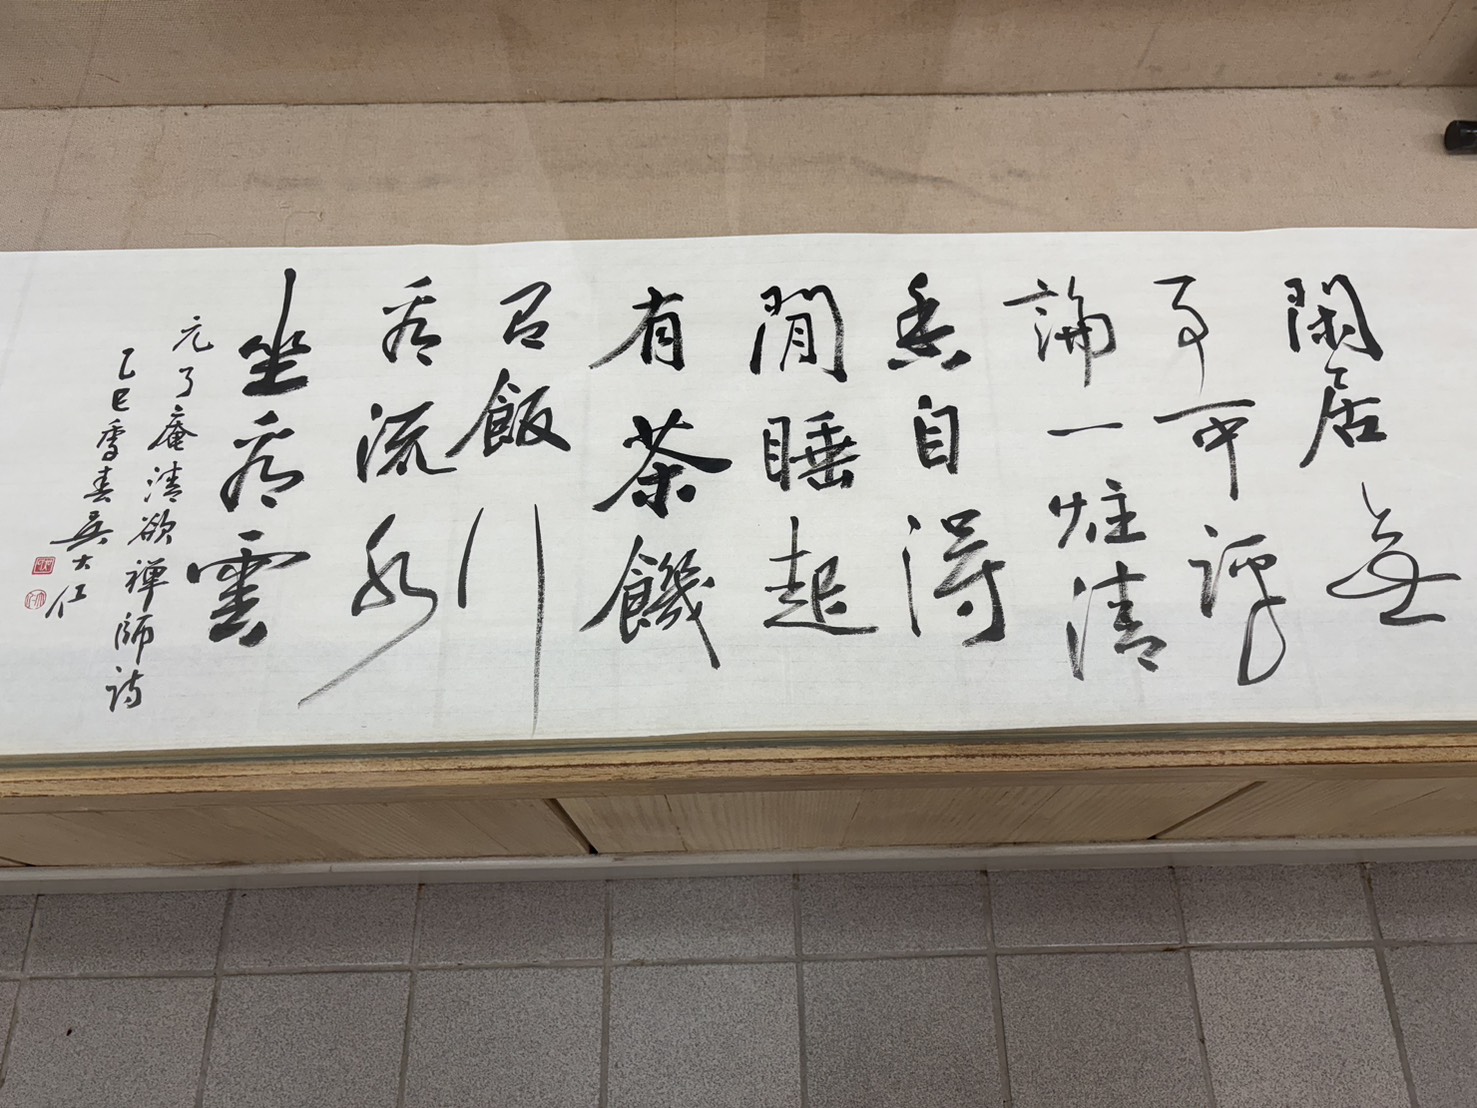 閑居無
事可評
論一炷清
香自得
聞睡起
有茶饑
有飯行
看流水
坐看雲
元了庵清欲禪師詩
乙巳季春吳大仁